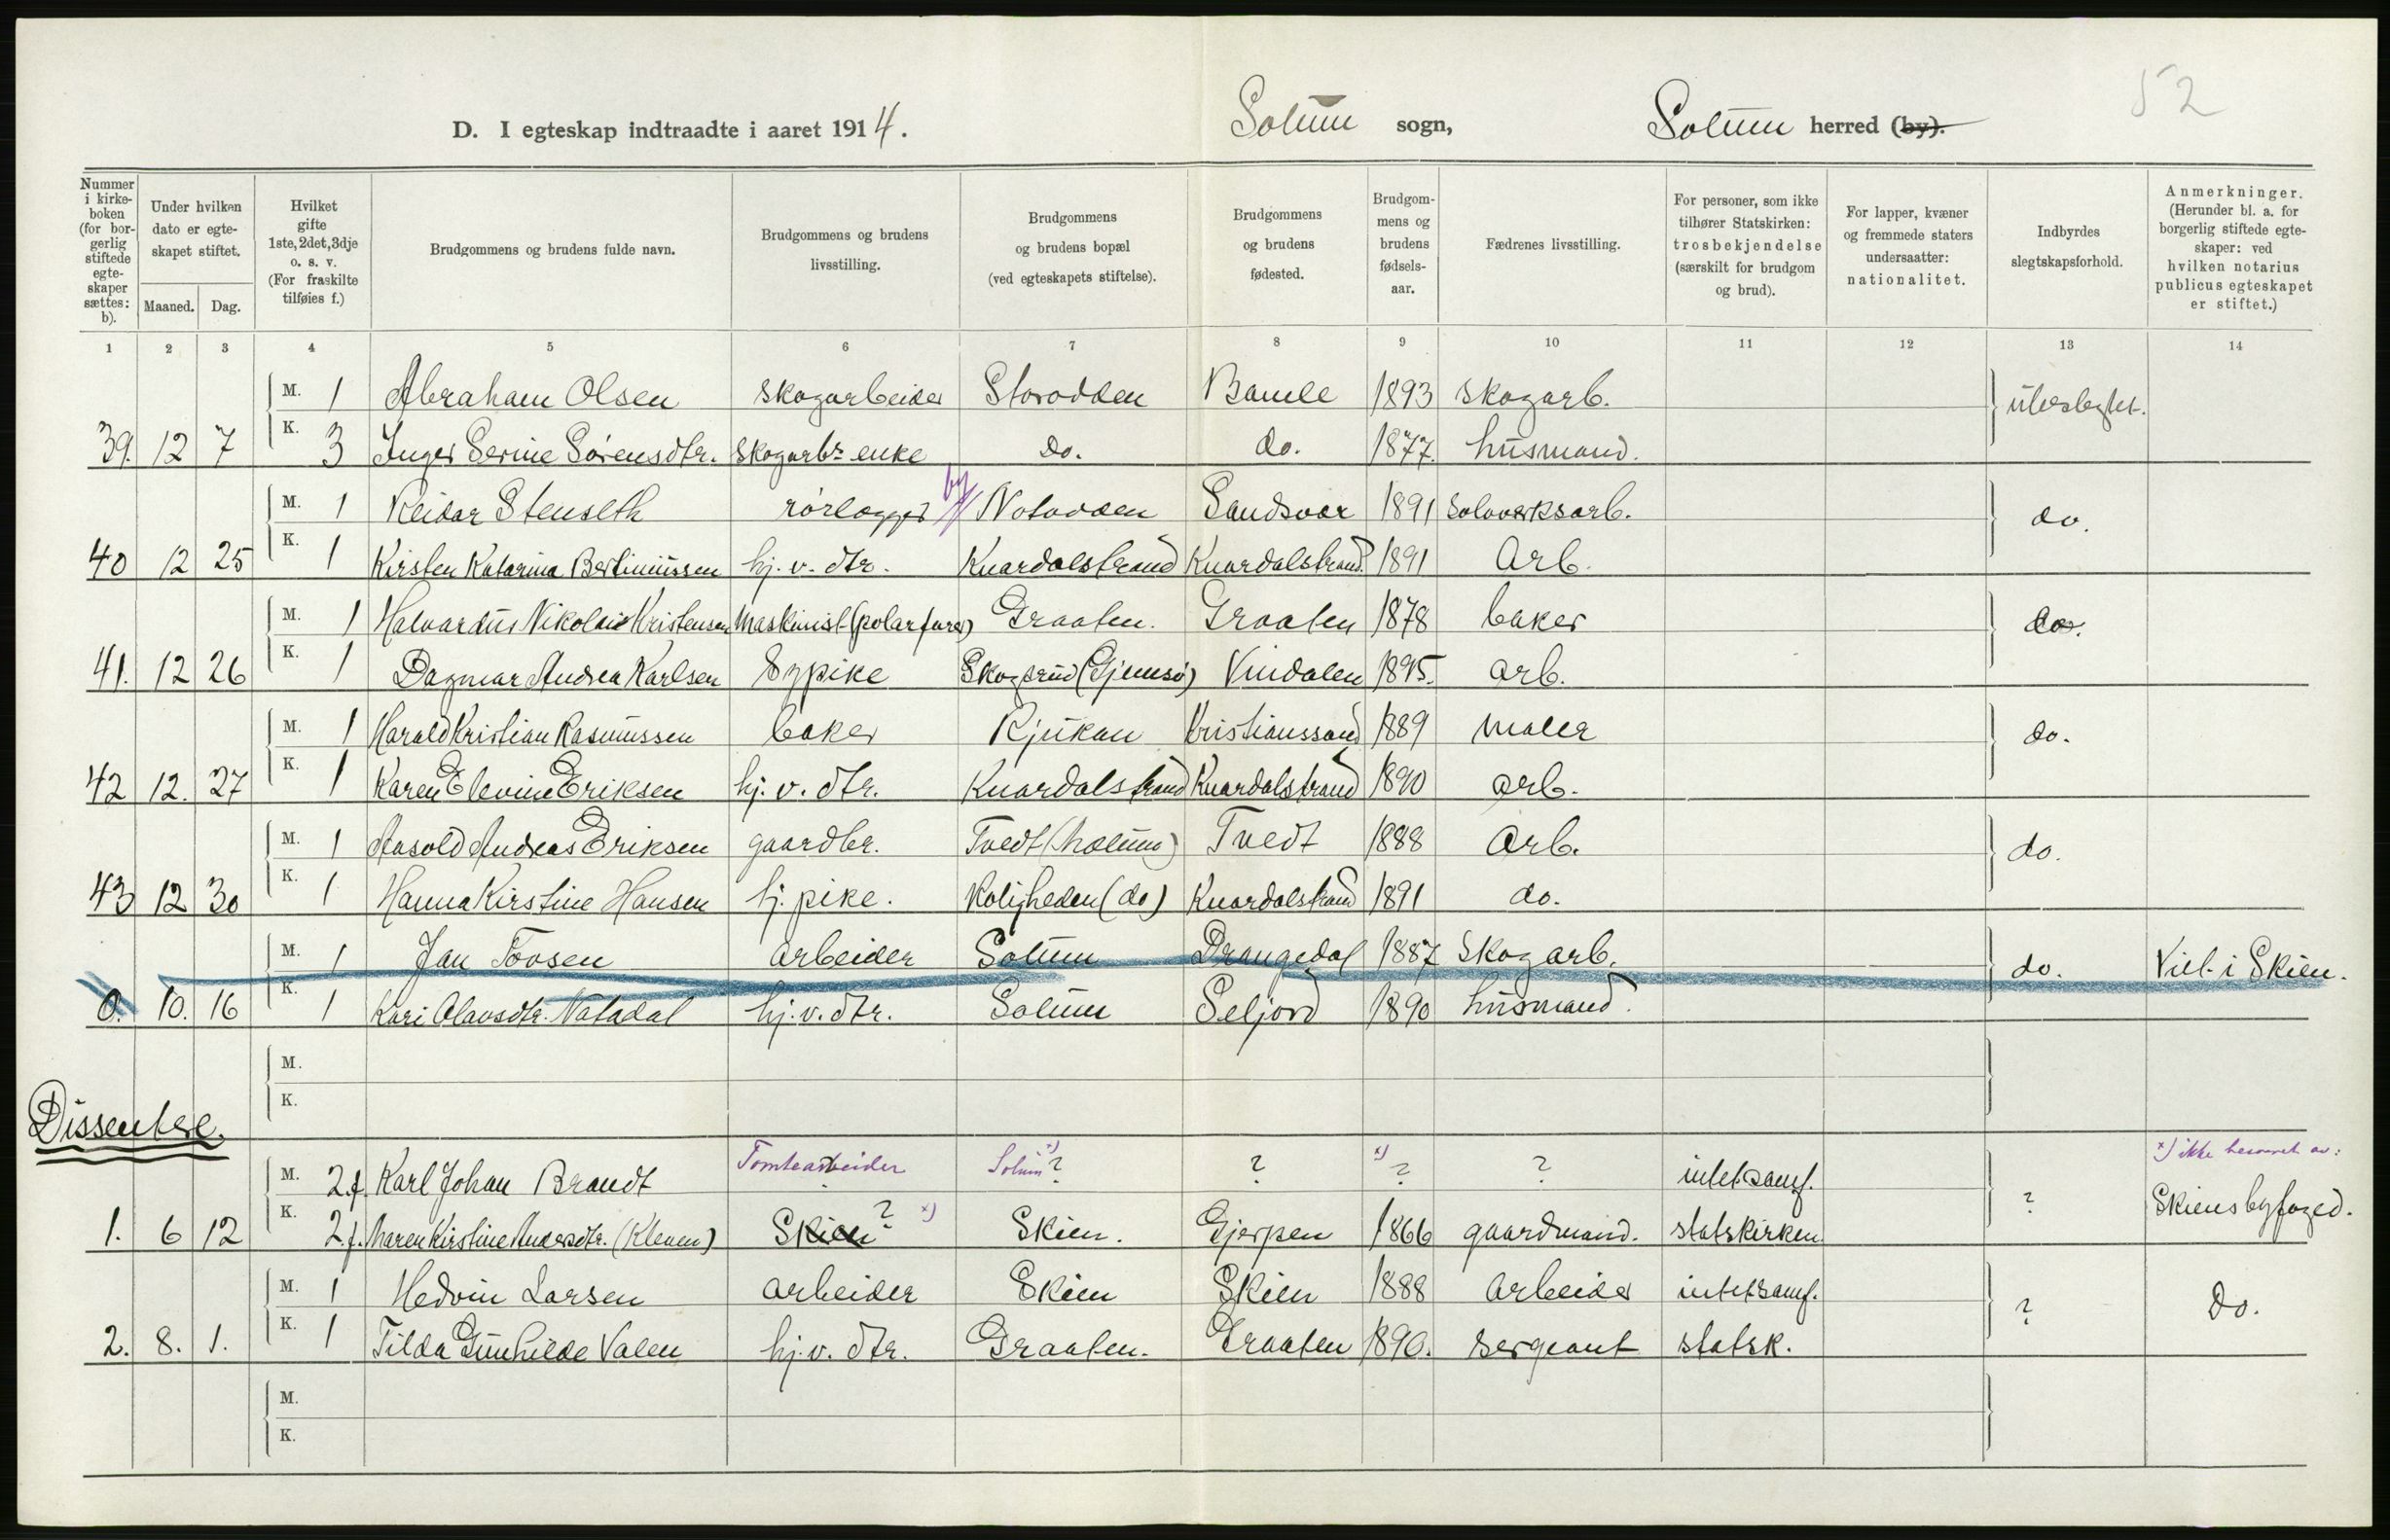 52
D. I egteskap indtraadte i aaret 1914. Solum sogn, Solum herred (by).
Nummer i kirkeboken (for borgerlig stiftede egteskaper sættes: b).
Under hvilken dato er egteskapet stiftet.
Maaned. Dag.
Hvilket gifte 1ste, 2det, 3dje o. s. v. (For fraskilte tilføies f.)
Brudgommens og brudens fulde navn.
Brudgommens og brudens livsstilling.
Brudgommens og brudens bopæl (ved egteskapets stiftelse).
Brudgommens og brudens fødested.
Brudgommens og brudens fødselsaar.
Fædrenes livsstilling.
For personer, som ikke tilhører Statskirken: trosbekjendelse (særskilt for brudgom og brud).
For lapper, kvæner og fremmede staters undersaatter: nationalitet.
Indbyrdes slegtskapsforhold.
Anmerkninger. (Herunder bl. a. for borgerlig stiftede egteskaper: ved hvilken notarius publicus egteskapet er stiftet.)
1 2 3 4 5 6 7 8 9 10 11 12 13 14
M. 1 Abraham Olsen skogarbeider Storodden Bamle 1893 skogarb. ubeslegtet.
39. 12 7 K. 3 Inger Serine Sørensdtr. skogarbs enke do. do. 1877. husmand.
M. 1 Reidar Stenseth rørlægger by Notodden Sandsvær 1891 Solvverksarb. do.
40 12 25 K. 1 Kirsten Katarina Bertinussen hj. v. dtr. Knardalstrand Knardalstrand 1891 Arb.
M. 1 Halvardus Nikolai Kristensen Maskinist (polarfarer) Graaten. Graaten 1878 baker do.
41. 12 26 K. 1 Dagmar Andrea Karlsen Sypike Skogsrud (Gjemsø) Vindalen 1895. arb.
M. 1 Harald Kristian Rasmussen baker Rjukan Kristianssand 1889 maler do.
42 12. 27 K. 1 Karen Elevine Eriksen hj. v. dtr. Knardalstrand Knardalstrand 1890 arb.
M. 1 Aasold Andreas Eriksen gaardbr. Tvedt (Solum) Tvedt 1888 Arb. do.
43 12 30 K. 1 Hanna Kirstine Hansen hj. pike. Roligheden (do) Knardalstrand 1891 do.
M. 1 Jan Tovsen arbeider Solum Drangedal 1887 Skogarb. do. Viet i Skien.
0. 10. 16 K. 1 Kari Olavsdtr. Natadal hj. v. dtr. Solum Seljord 1890 husmand.
M.
K.
Dissentere.
M. 2.f. Karl Johan Brandt Tomtearbeider Solum x) ? ? x) ? ? intet samf. ? x) ikke besvaret av:
1. 6 12 K. 2.f. Maren Kirstine Andersdtr. (Kleven) Skien ? x) Skien. Gjerpen 1866 gaardmand. statskirken Skiens byfoged.
M. 1 Hedvin Larsen arbeider Skien Skien 1888 arbeider intet samf. ? Do.
2. 8. 1. K. 1 Tilda Gunhilde Valen hj. v. dtr. Graaten. Graaten 1890. sergeant statsk.
M.
K.